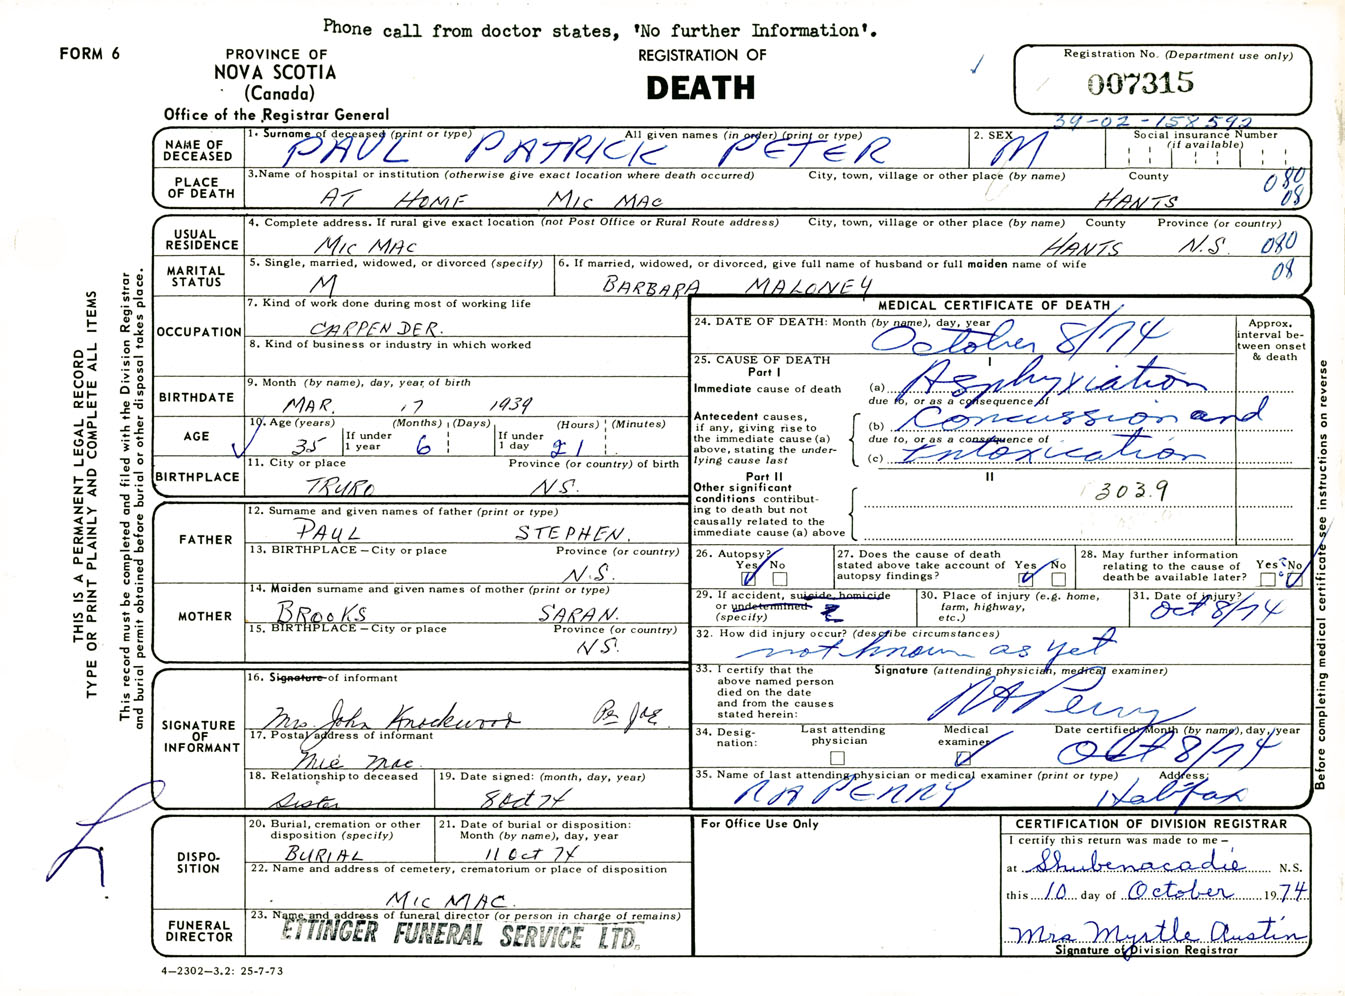 Phone call from doctor states, 'No further Information'.
FORM 6
PROVINCE OF
NOVA SCOTIA
(Canada)
Office of the Registrar General
REGISTRATION OF
DEATH
Registration No. (Department use only)
007315
39-02-158592
NAME OF DECEASED
1. Surname of deceased (print or type) All given names (in order) (print or type)
PAUL PATRICK PETER
2. SEX
M
Social insurance Number
(if available)
PLACE OF DEATH
3.Name of hospital or institution (otherwise give exact location where death occurred) City, town, village or other place (by name) County
AT HOME MIC MAC HANTS
080
08
USUAL RESIDENCE
4. Complete address. If rural give exact location (not Post Office or Rural Route address) City, town, village or other place (by name) County Province (or country)
MIC MAC HANTS N.S. 080
08
MARITAL STATUS
5. Single, married, widowed, or divorced (specify)
M
6. If married, widowed, or divorced, give full name of husband or full maiden name of wife
BARBARA MALONEY
OCCUPATION
7. Kind of work done during most of working life
CARPENDER.
8. Kind of business or industry in which worked
BIRTHDATE
9. Month (by name), day, year of birth
MAR. 17 1939
AGE
10. Age (years) (Months) (Days) (Hours) (Minutes)
35 If under 1 year 6 If under 1 day 21
BIRTHPLACE
11. City or place Province (or country) of birth
TRURO N.S.
FATHER
12. Surname and given names of father (print or type)
PAUL STEPHEN.
13. BIRTHPLACE – City or place Province (or country)
N.S.
MOTHER
14. Maiden surname and given names of mother (print or type)
BROOKS SARAN.
15. BIRTHPLACE – City or place Province (or country)
N.S.
SIGNATURE OF INFORMANT
16. Signature of informant
Mrs. John Knockwood
17. Postal address of informant
Mic Mac.
18. Relationship to deceased
Sister
19. Date signed: (month, day, year)
8 Oct 74
DISPO-
SITION
20. Burial, cremation or other
disposition (specify)
BURIAL
21. Date of burial or disposition:
Month (by name), day, year
11 Oct 74
22. Name and address of cemetery, crematorium or place of disposition
MIC MAC.
FUNERAL DIRECTOR
23. Name and address of funeral director (or person in charge of remains)
ETTINGER FUNERAL SERVICE LTD.
4–2302–3.2: 25-7-73
MEDICAL CERTIFICATE OF DEATH
24. DATE OF DEATH: Month (by name), day, year
October 8/74
Approx. interval be-
tween onset
& death
25. CAUSE OF DEATH
Part I
I
Immediate cause of death (a) Asphyxiation
due to, or as a consequence of
Antecedent causes,
if any, giving rise to
the immediate cause (a)
above, stating the under-
lying cause last
(b) Concussion and
due to, or as a consequence of
(c) Intoxication
Part II
II
Other significant
conditions contribut-
ing to death but not
causally related to the
immediate cause (a) above
303.9
26. Autopsy?
Yes No
27. Does the cause of death
stated above take account of
autopsy findings?
Yes No
28. May further information
relating to the cause of
death be available later?
Yes No
29. If accident, suicide, homicide
or undetermined
(specify)
30. Place of injury (e.g. home,
farm, highway,
etc.)
31. Date of injury?
Oct 8/74
32. How did injury occur? (describe circumstances)
not known as yet
33. I certify that the
above named person
died on the date
and from the causes
stated herein:
Signature (attending physician, medical examiner)
R A Perry
34. Desig-
nation:
Last attending
physician
Medical
examiner
Date certified: Month (by name), day, year
Oct 8/74
35. Name of last attending physician or medical examiner (print or type) Address:
R A PERRY Halifax
For Office Use Only
CERTIFICATION OF DIVISION REGISTRAR
I certify this return was made to me –
at Shubenacadie N.S.
this 10 day of October 1974
Mrs Myrtle Austin
Signature of Division Registrar
THIS IS A PERMANENT LEGAL RECORD
TYPE OR PRINT PLAINLY AND COMPLETE ALL ITEMS
This record must be completed and filed with the Division Registrar
and burial permit obtained before burial or other disposal takes place.
Before completing medical certificate see instructions on reverse